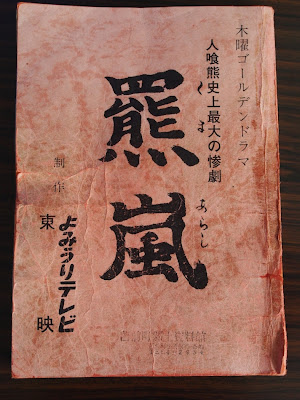 木曜ゴールデンドラマ
人喰熊史上最大の惨劇
羆嵐
くま
あらし
制作
よみうりテレビ
東映